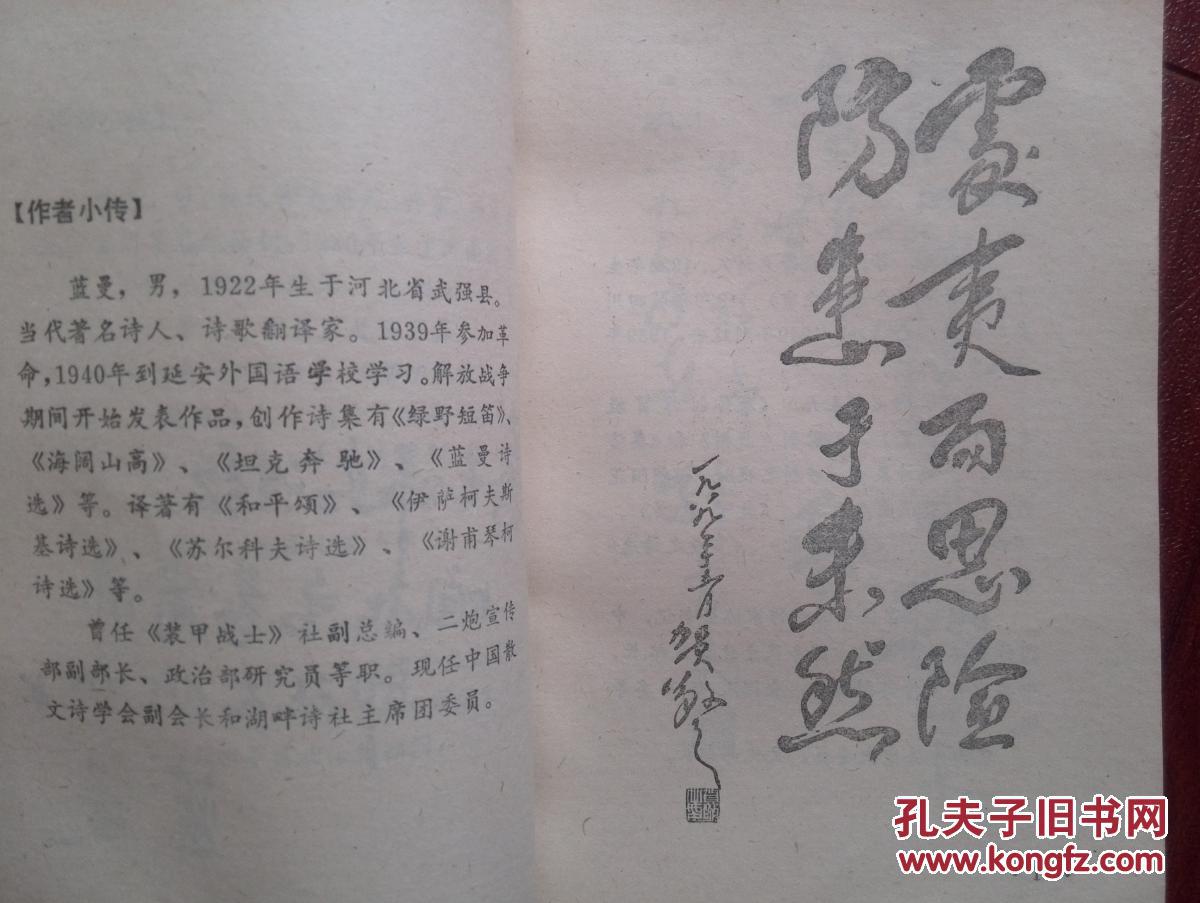 【作者小传】
蓝曼，男，1922年生于河北省武强县。
当代著名诗人、诗歌翻译家。1939年参加革
命，1940年到延安外国语学校学习。解放战争
期间开始发表作品，创作诗集有《绿野短笛》、
《海阔山高》、《坦克奔驰》、《蓝曼诗
选》等。译著有《和平颂》、《伊萨柯夫斯
基诗选》、《苏尔科夫诗选》、《谢甫琴柯
诗选》等。
曾任《装甲战士》社副总编、二炮宣传
部副部长、政治部研究员等职。现任中国散
文诗学会副会长和湖畔诗社主席团委员。
處夷而思险
防患于未然
一九八九年五月
贺敬之
孔夫子旧书网
www.kongfz.com